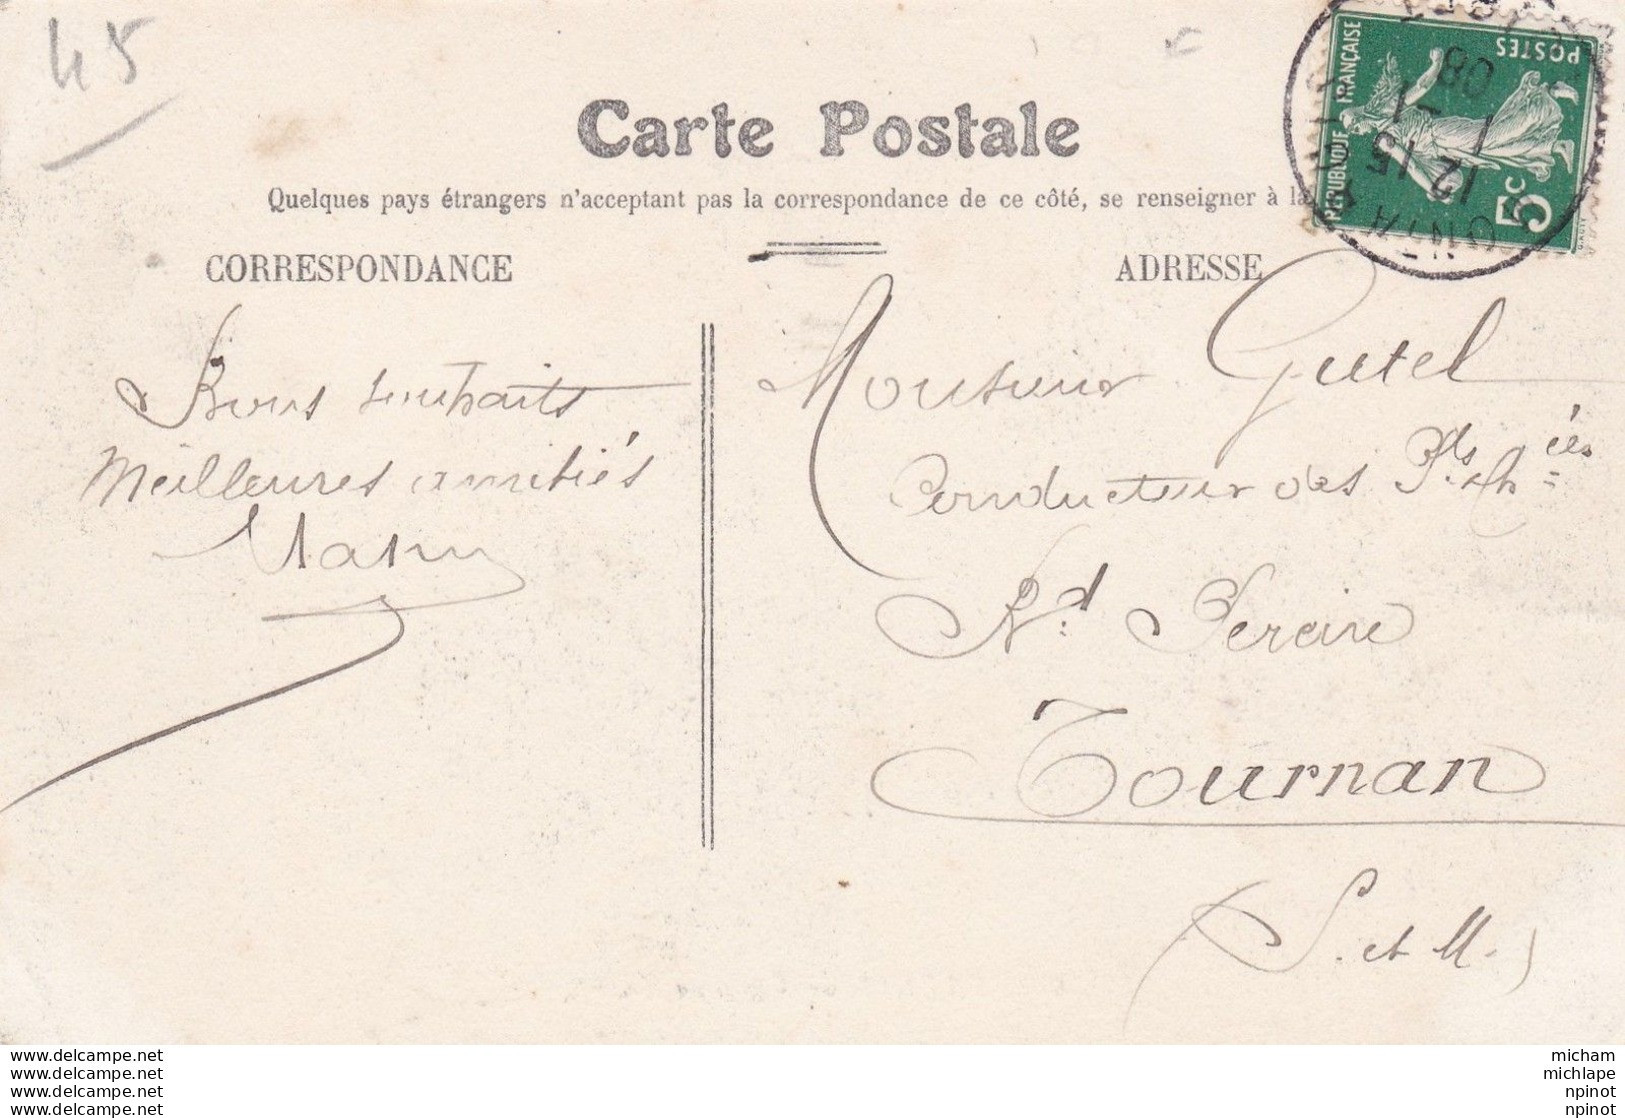 45
Carte Postale
Quelques pays étrangers n'acceptant pas la correspondance de ce côté, se renseigner à la
CORRESPONDANCE
ADRESSE
REPUBLIQUE FRANÇAISE
POSTES
5c
12 15
1 - 1
08
Bons souhaits
Meilleures amitiés
Monsieur Gutel
Conducteur des Pts. et Ch = ées
Bd Pereire
Tournan
(S. et M.)
www.delcampe.net
www.delcampe.net
www.delcampe.net
www.delcampe.net
micham
michlape
npinot
npinot